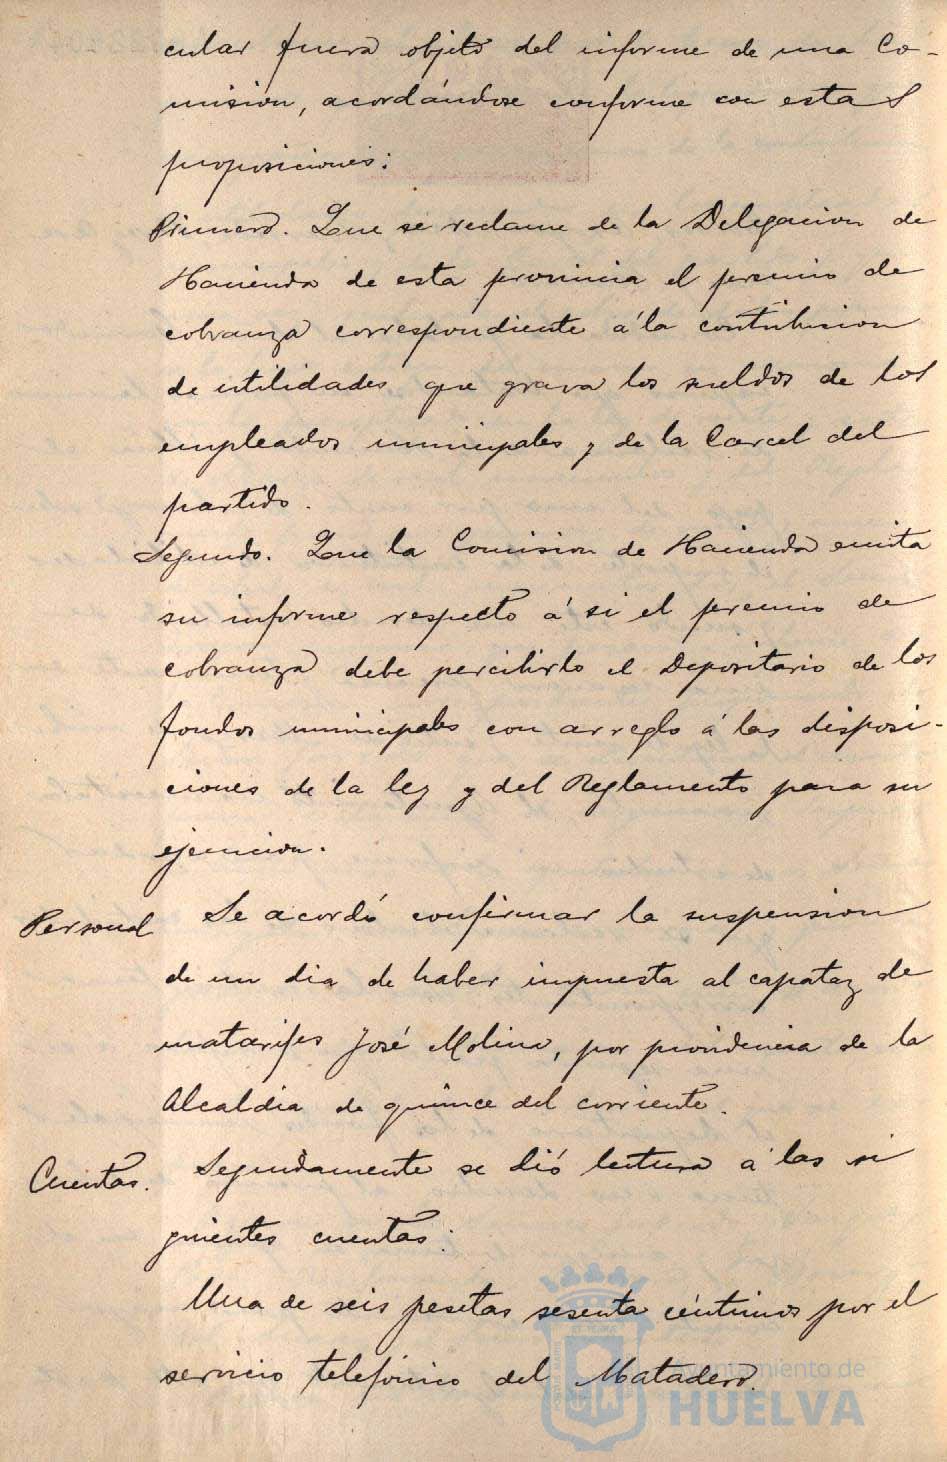 cular fuera objeto del informe de una Co-
mision, acordándose conforme con estas
proposiciones:
Primero. Que se reclame de la Delegacion de
Hacienda de esta provincia el premio de
cobranza correspondiente á la contribucion
de utilidades que grava los sueldos de los
empleados municipales y de la Carcel del
partido.
Segundo. Que la Comision de Hacienda emita
su informe respecto á si el premio de
cobranza debe percibirlo el Depositario de los
fondos municipales con arreglo á las disposi-
ciones de la ley y del Reglamento para su
ejecucion.
Personal Se acordó confirmar la suspension
de un dia de haber impuesta al capataz de
matarifes José Molina, por providencia de la
Alcaldia de quince del corriente.
Cuentas. Seguidamente se dió lectura á las si
guientes cuentas:
Una de seis pesetas sesenta céntimos por el
servicio telefonico del Matadero.
Ayuntamiento de
HUELVA